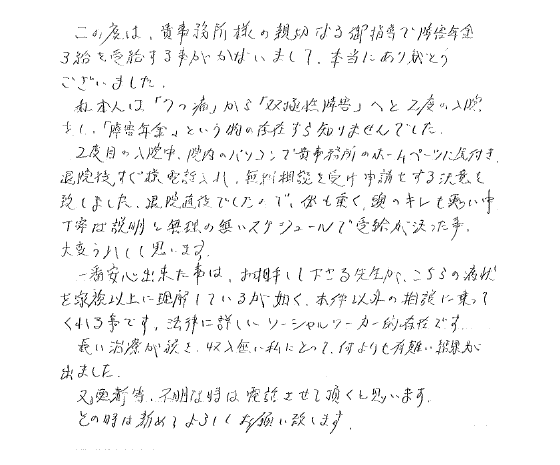 この度は、貴事務所様の親切なる御指導で障害年金
3級を受給する事がかないまして、本当にありがとう
ございました。
私本人は「うつ病」から「双極性障害」へと2度の入院
をし、「障害年金」という物の存在すら知りませんでした。
2度目の入院中、院内のパソコンで貴事務所のホームページに気付き、
退院後すぐ様電話入れ、無料相談を受け申請をする決意を
致しました。退院直後でしたので、体も重く、頭のキレも悪い中
丁寧な説明と無理の無いスケジュールで受給が決った事。
大変うれしく思います。
一番安心出来た事は、お相手して下さる先生が、こちらの病状
を家族以上に理解しているが如く、本件以外の相談に乗って
くれる事です。法律に詳しいソーシャルワーカー的存在です。
長い治療が続き、収入無い私にとって、何よりも有難い結果が
出ました。
又、更新等、不明な時は電話させて頂くと思います。
その時は改めてよろしくお願い致します。